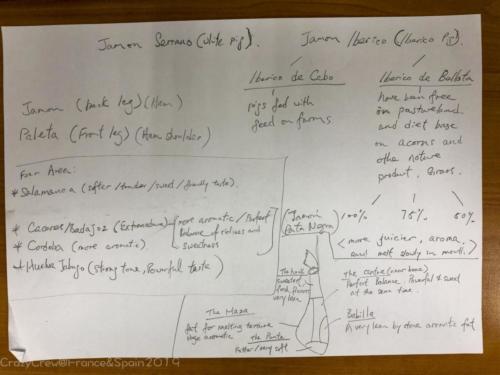 Jamon Serrano (white pig).
Jamon Iberico (Iberico Pig).
Iberico de Cebo
pigs fed with
feed on farms
Iberico de Bellota
have been free
on pastureland
and diet base
on acorns and
other nature
product, grass.
Jamon (back leg) (Ham)
Paleta (Front leg) (Ham shoulder)
Four Area:
* Salamanca (softer/tender/sweet/ taste).
* Caceres/Badajoz (Extremadura) (more aromatic / Perfect
Balance of and
sweetness
* Cordoba (more aromatic)
* Huelva Jabugo (strong tone, Powerful taste)
(Jamon
Pata Negra)
100% 75% 50%
< more juicier, aroma,
and melt slowly in mouth.
The
sweetest
very lean
The centre (near bone)
Perfect balance. Powerful & sweet
at the same time.
The Maza
fat for melting texture
huge aromatic
The Punta
Fatter/very soft
Babilla
A very lean by dense aromatic fat
CrazyCrew@France&Spain2019